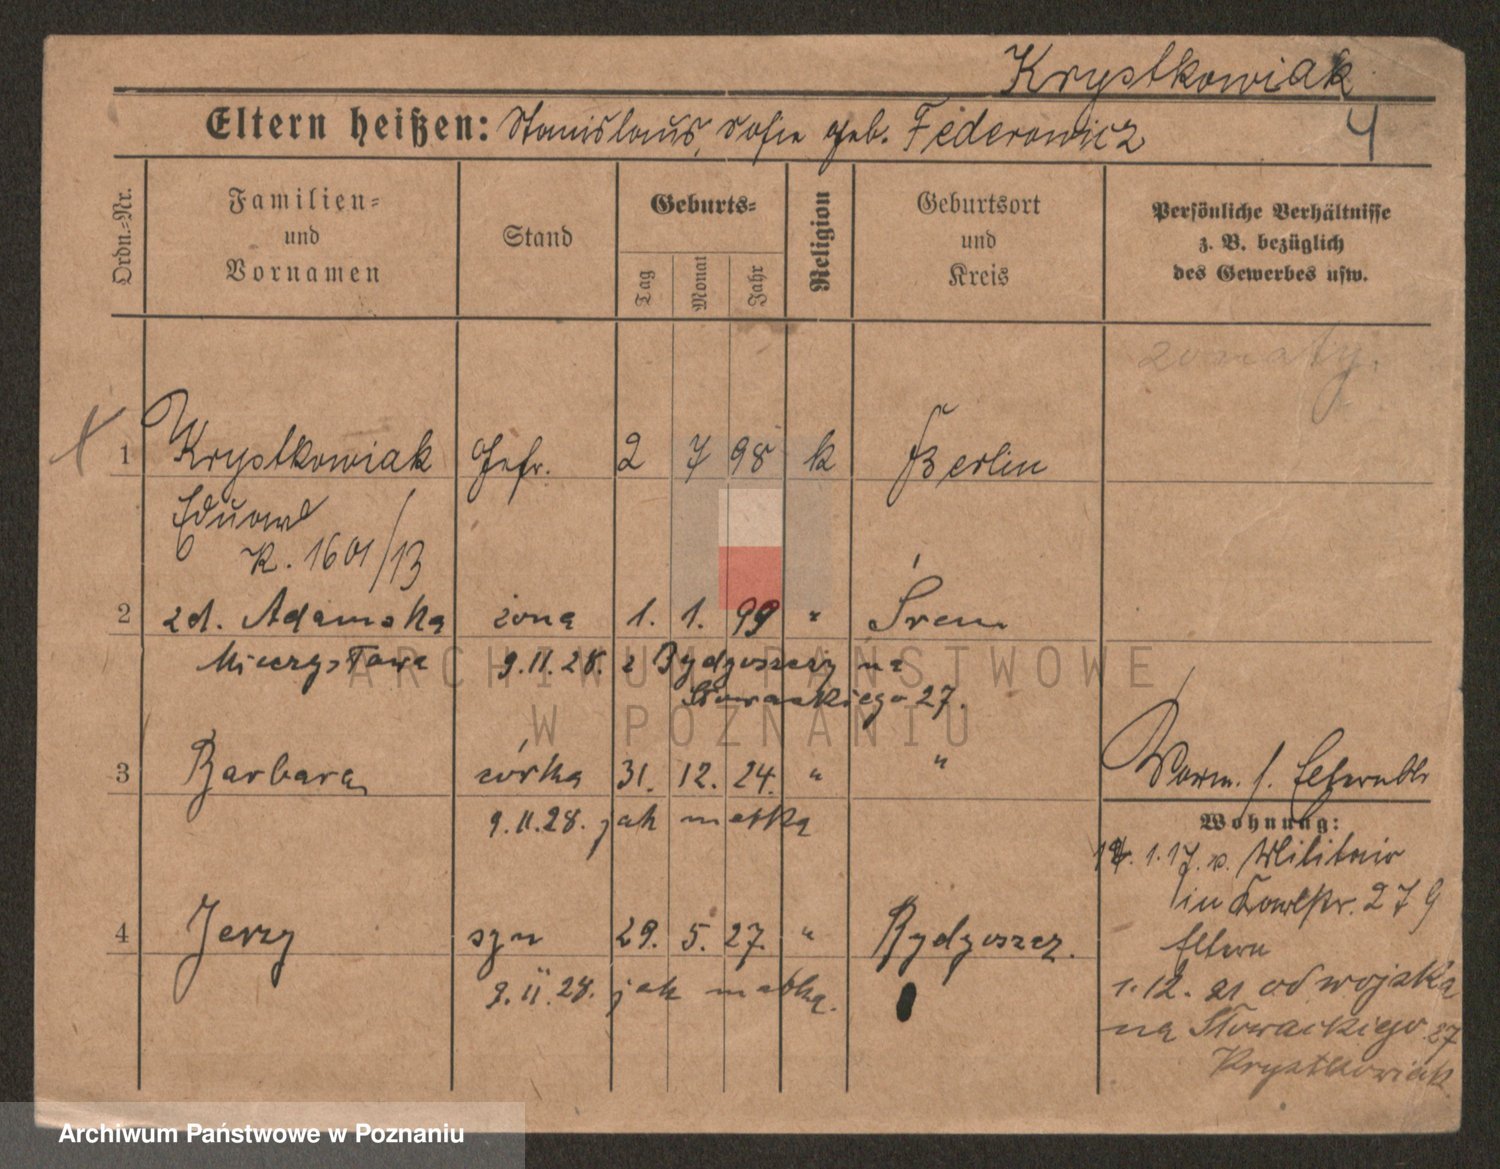 Krystkowiak
4
Eltern heißen: Stanislaus, Sofie geb. Federowicz
Ordn.-Nr.
Familien- und Vornamen
Stand
Geburts-
Tag
Monat
Jahr
Religion
Geburtsort und Kreis
Persönliche Verhältnisse
z. B. bezüglich
des Gewerbes usw.
żonaty.
1 Krystkowiak Gefr. 2 7 98 k Berlin
Eduard
K. 1601/13
2 zd. Adamska żona 1. 1. 99 " Śrem
Mieczysława 9.11.28. z Bydgoszczy na
Słowackiego 27.
3 Barbara córka 31. 12. 24. " "
9.11.28. jak matka
4 Jerzy syn 29. 5. 27. " Bydgoszcz.
9.11.28. jak matka.
Vorm. s. Elternbl.
Wohnung:
1.17. v. Militair
in 279
Eltern
1.12.21 od wojska
na Słowackiego 27
Krystkowiak
ARCHIWUM PAŃSTWOWE
W POZNANIU
Archiwum Państwowe w Poznaniu